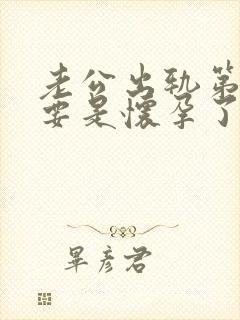 老公出轨第
要是怀孕了
毕彦君